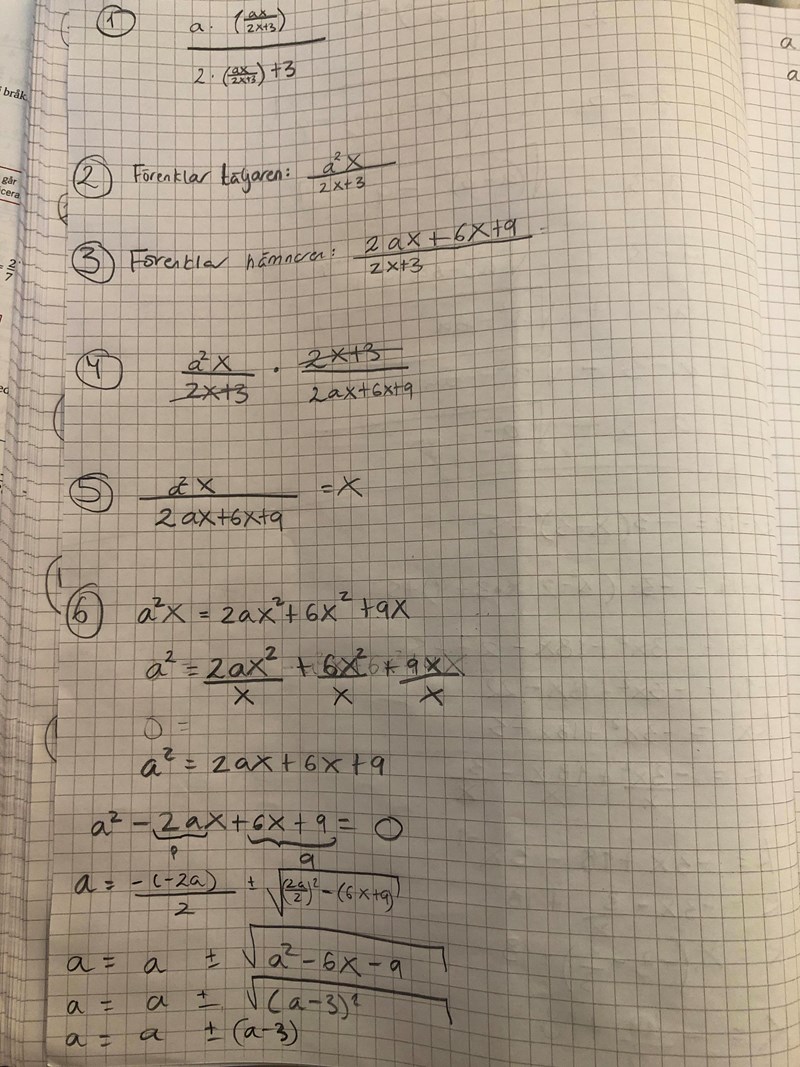 ① a · (ax/2x+3) / 2 · (ax/2x+3) + 3
bråk
② Förenklar täljaren: a²x / 2x+3
går
cera
③ Förenklar nämnaren: 2ax + 6x + 9 / 2x+3
2/7
④ a²x / 2x+3 · 2x+3 / 2ax+6x+9
⑤ a²x / 2ax+6x+9 = x
⑥ a²x = 2ax² + 6x² + 9x
a² = 2ax²/x + 6x²/x + 9x/x
0 =
a² = 2ax + 6x + 9
a² - 2ax + 6x + 9 = 0
p q
a = -(-2a)/2 ± √(2a/2)² - (6x+9)
a = a ± √a² - 6x - 9
a = a ± √(a-3)²
a = a ± (a-3)
a
a